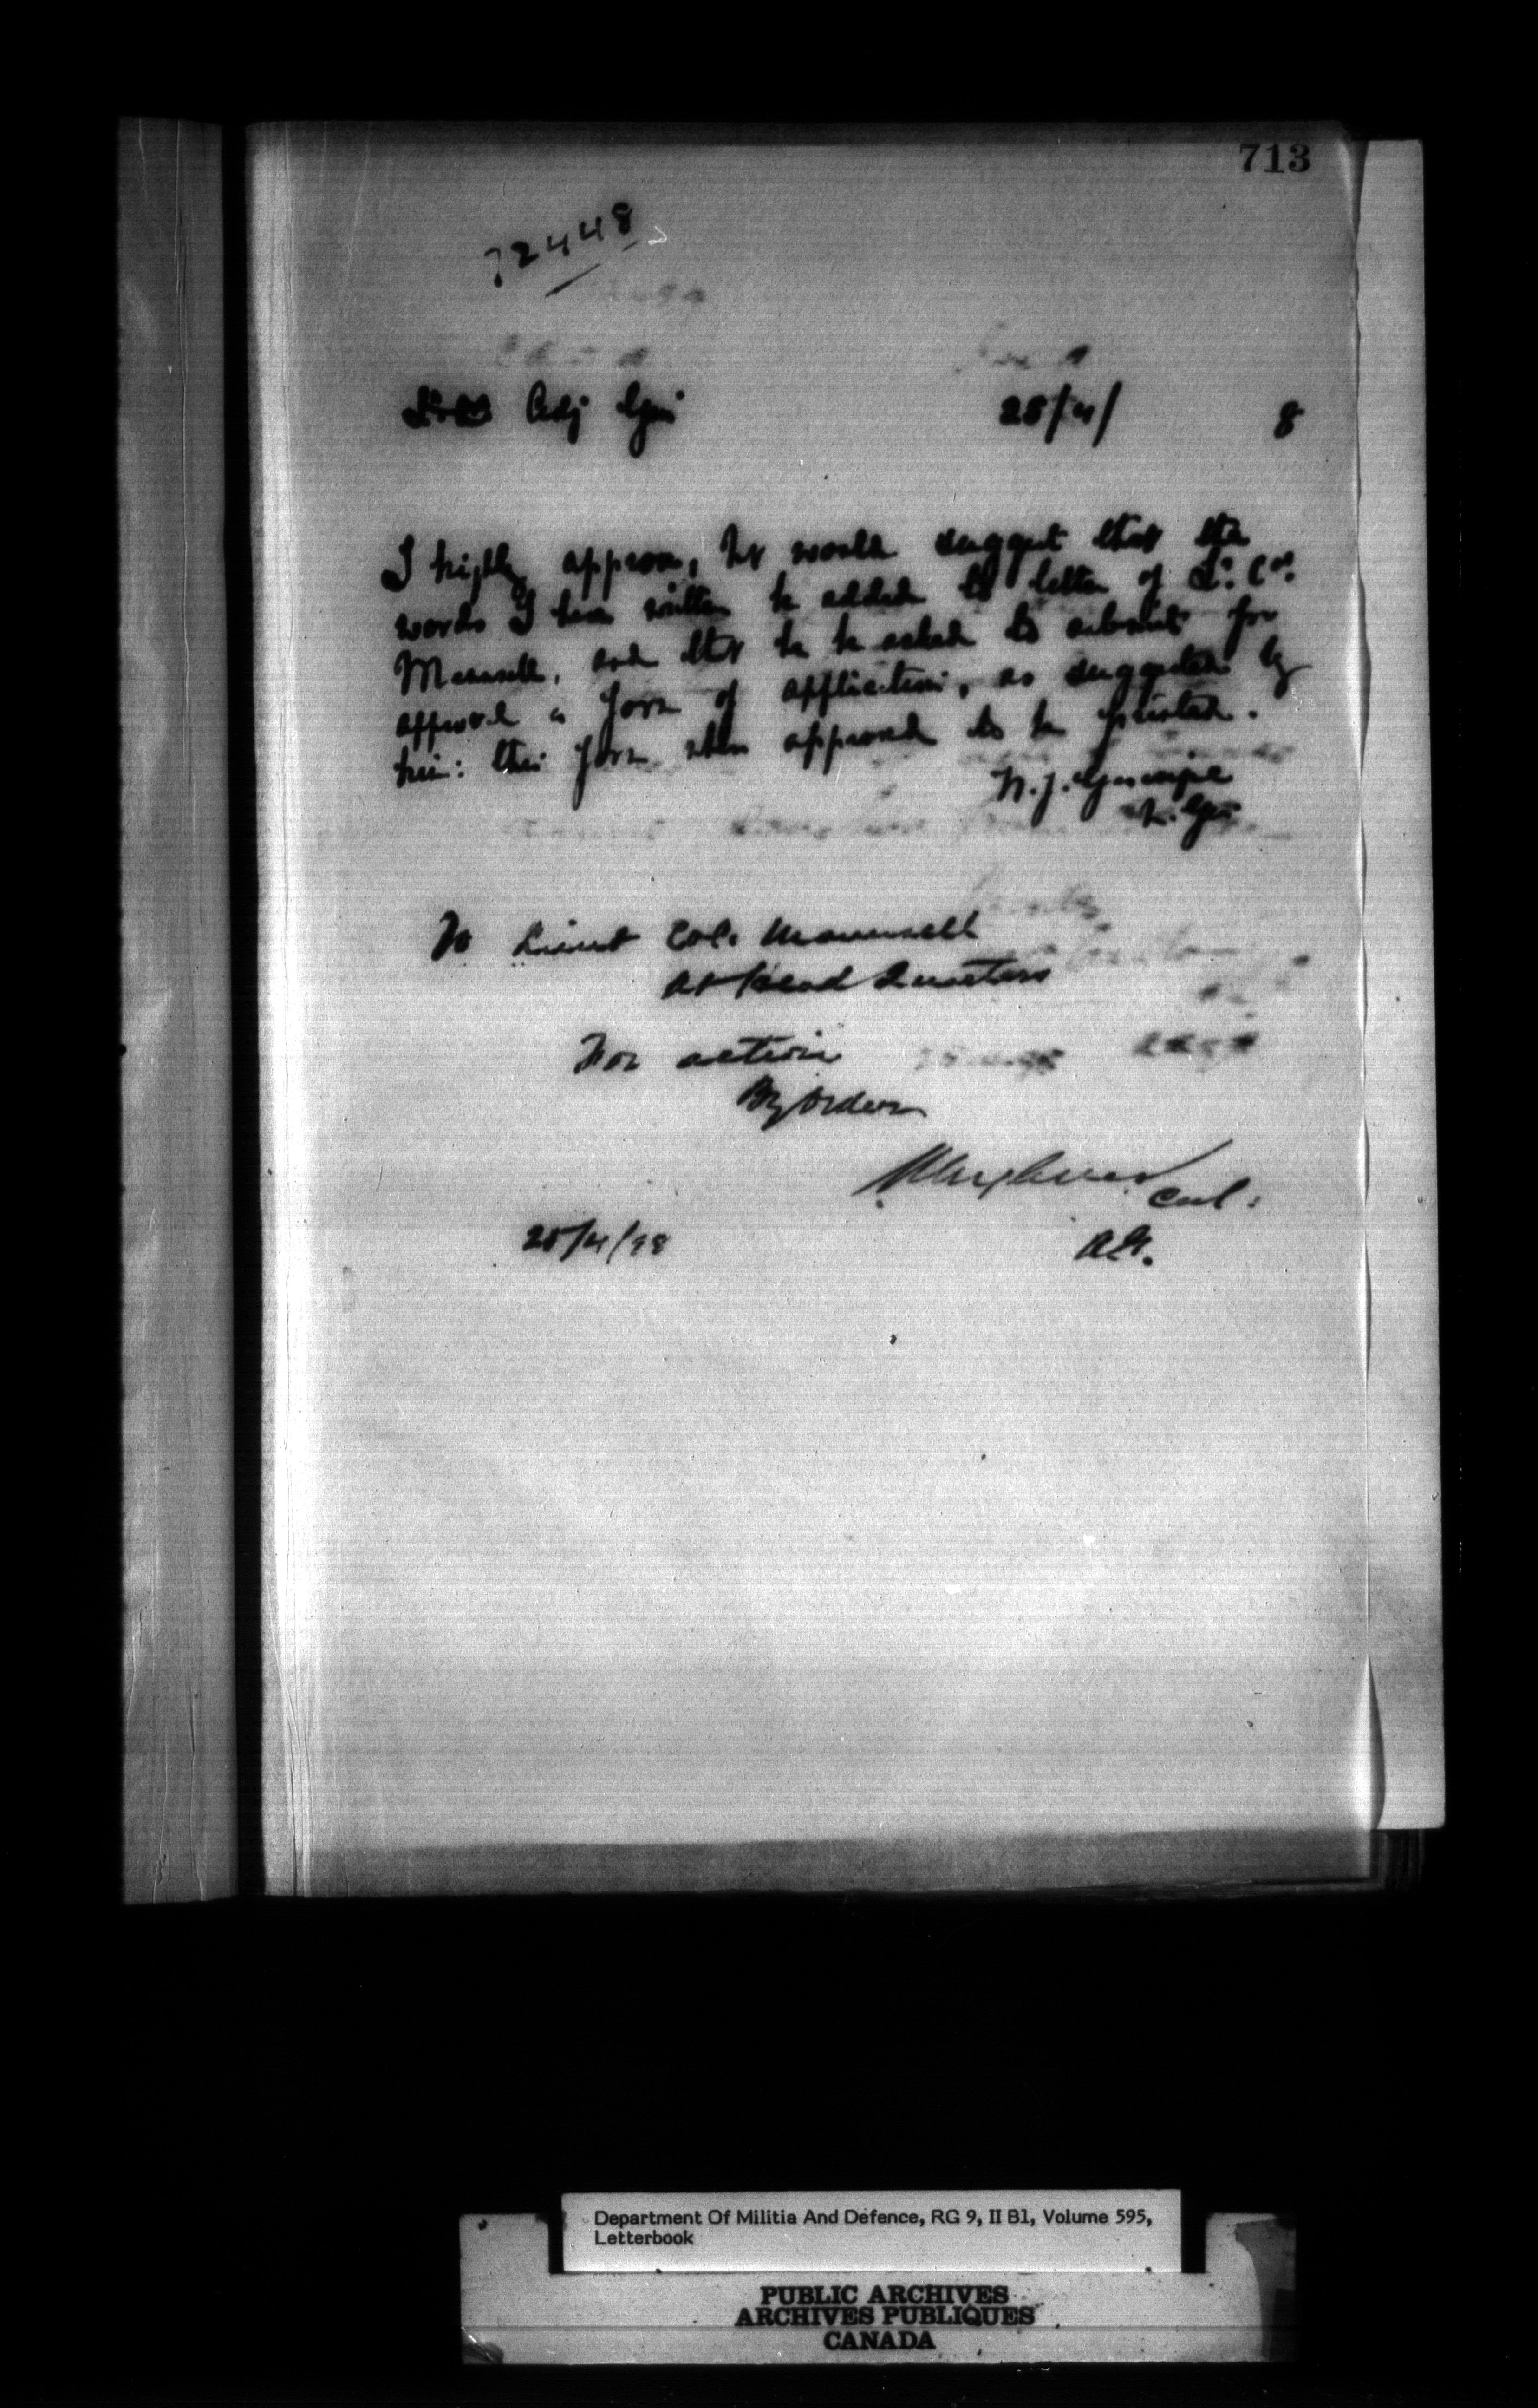 713
72448
Adj Gen 25/4/ 8
I highly approve, but would suggest that the
words I have written be added to letter of Lt. Col.
Maunsell, and that he be asked to submit for
approval a form of application, as suggested by
him: this form when approved to be printed.
W. J. Gascoigne
M. Gen
To Lieut Col. Maunsell
at Head Quarters
For action
By order
Col:
25/4/98 A.G.
Department Of Militia And Defence, RG 9, II B1, Volume 595,
Letterbook
PUBLIC ARCHIVES
ARCHIVES PUBLIQUES
CANADA